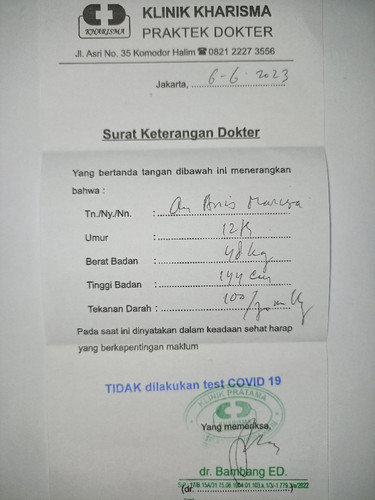 KLINIK KHARISMA
KHARISMA
PRAKTEK DOKTER
Jl. Asri No. 35 Komodor Halim ☎ 0821 2227 3556
Jakarta, 6-6-2023
Surat Keterangan Dokter
Yang bertanda tangan dibawah ini menerangkan
bahwa :
Tn./Ny./Nn. : An Anis Marissa
Umur : 12
Berat Badan : 48 kg
Tinggi Badan : 144 cm
Tekanan Darah : 100/
Pada saat ini dinyatakan dalam keadaan sehat harap
yang berkepentingan maklum
TIDAK dilakukan test COVID 19
KLINIK PRATAMA
Yang memeriksa,
dr. Bambang ED.
(dr. )